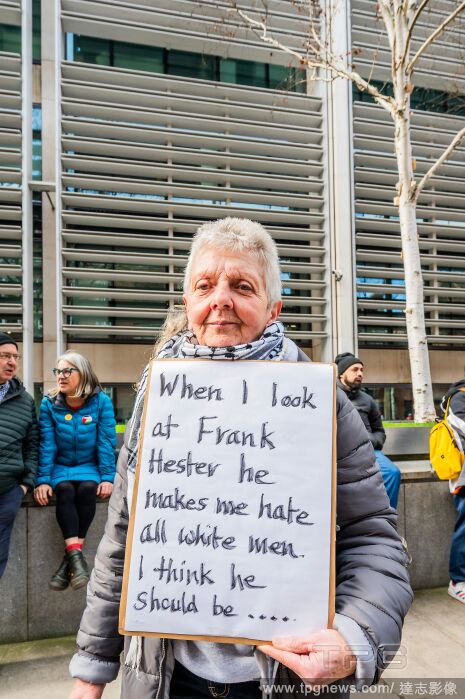 When I look
at Frank
Hester he
makes me hate
all white men.
I think he
should be .....
TPG
www.tpgnews.com/達志影像